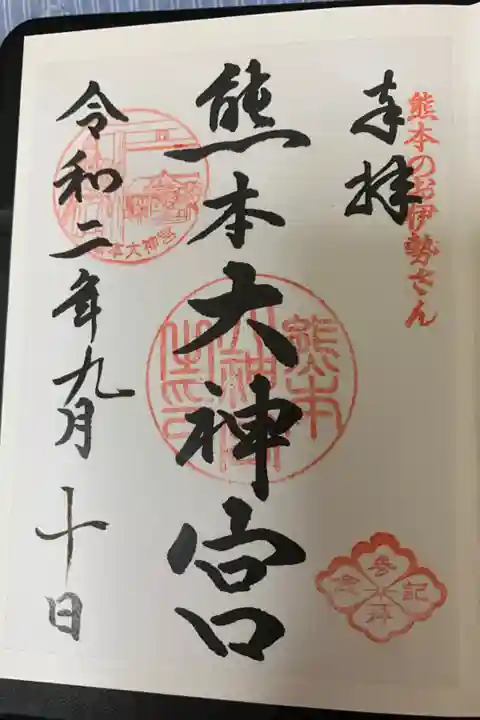 熊本のお伊勢さん
奉拝
熊本大神宮
令和二年九月十日
熊本大神宮
参拝記念